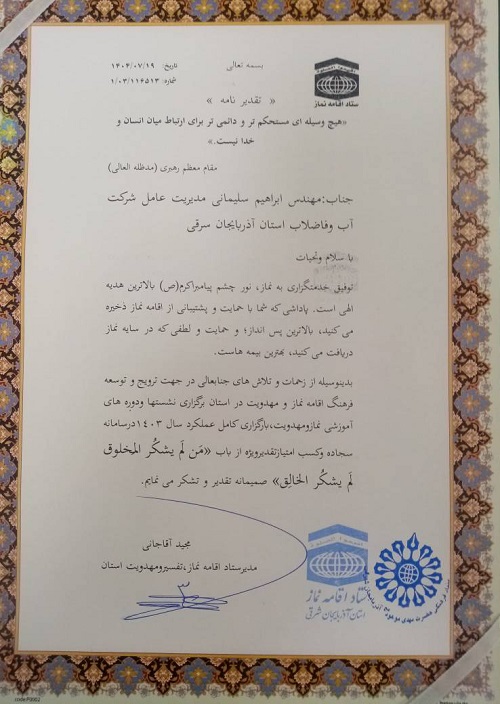 بسمه تعالی
تاریخ: ۱۴۰۴/۰۷/۱۹
شماره: ۱/۰۳/۱۱۶۵۱۳
ستاد اقامه نماز
« تقدیر نامه »
«هیچ وسیله ای مستحکم تر و دائمی تر برای ارتباط میان انسان و
خدا نیست.»
مقام معظم رهبری (مدظله العالی)
جناب:مهندس ابراهیم سلیمانی مدیریت عامل شرکت
آب وفاضلاب استان آذربایجان سرقی
با سلام وتحیات
توفیق خدمتگزاری به نماز، نور چشم پیامبراکرم(ص) بالاترین هدیه
الهی است. پاداشی که شما با حمایت و پشتیبانی از اقامه نماز ذخیره
می کنید، بالاترین پس انداز؛ و حمایت و لطفی که در سایه نماز
دریافت می کنید، بهترین بیمه هاست.
بدینوسیله از زحمات و تلاش های جنابعالی در جهت ترویج و توسعه
فرهنگ اقامه نماز و مهدویت در استان برگزاری نشستها ودوره های
آموزشی نمازومهدویت،بارگزاری کامل عملکرد سال ۱۴۰۳درسامانه
سجاده وکسب امتیازتقدیرویژه از باب «مَن لَم یشکُر المخلوق
لَم یشکُر الخالِق» صمیمانه تقدیر و تشکر می نمایم.
مجید آقاجانی
مدیرستاد اقامه نماز،تفسیرومهدویت استان
ستاد اقامه نماز
استان آذربایجان شرقی